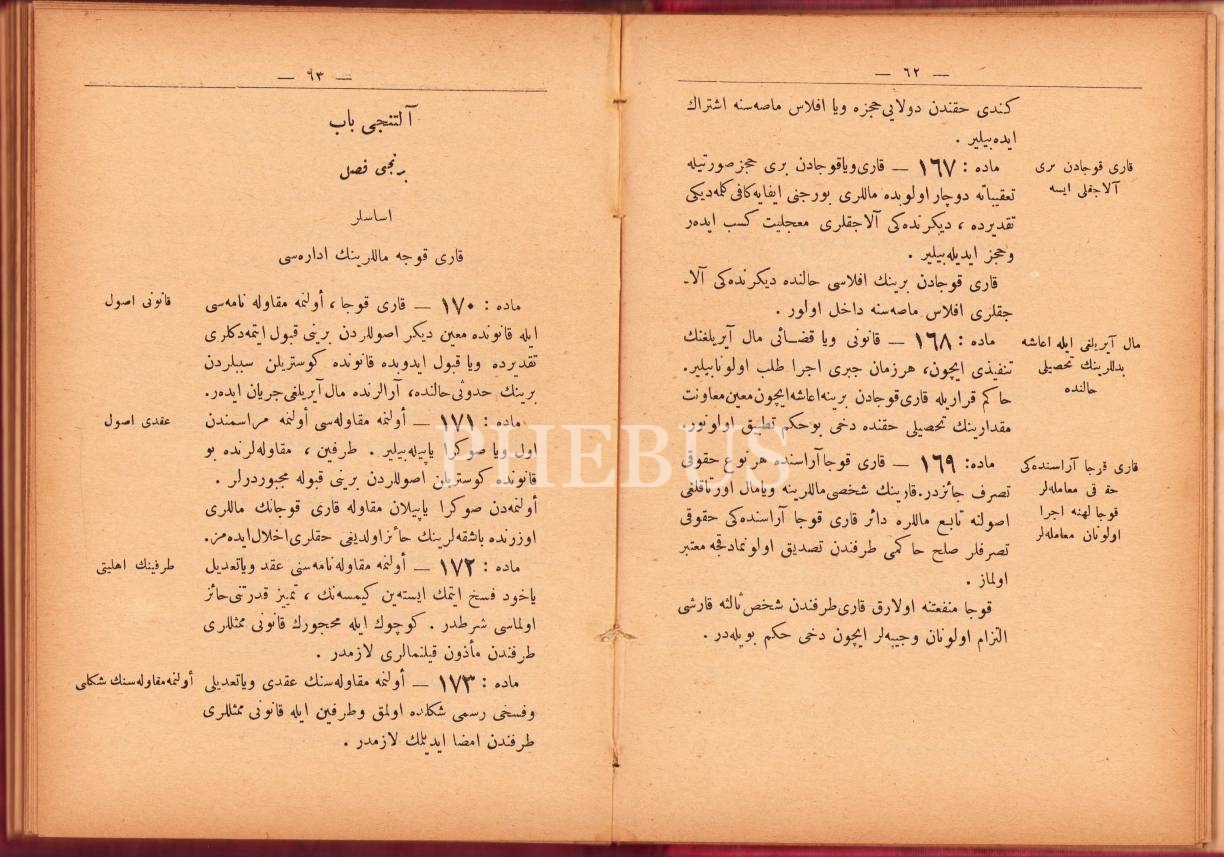 — ٦٢ —
كندى حقندن دولايى حجزه ويا افلاس ماصه‌سنه اشتراك
ايده‌بيلير .
قارى قوجادن برى
آلاجقلى ايسه
ماده : ١٦٧ — قارى وياقوجادن برى حجز صورتيله
تعقيباته دوچار اولوبده ماللرى بورجنى ايفايه كافى كلمه‌ديكى
تقديرده ، ديكرنده‌كى آلاجقلرى معجليت كسب ايده‌ر
وحجز ايديله‌بيلير .
قارى قوجادن برينك افلاسى حالنده ديكرنده‌كى آلا-
جقلرى افلاس ماصه‌سنه داخل اولور .
مال آيريلغى ايله اعاشه
بدللرينك تحصيلى
حالنده
ماده : ١٦٨ — قانونى ويا قضـائى مال آيريلغنك
تنفيذى ايچون، هرزمان جبرى اجرا طلب اولونابيلير.
حاكم قراريله قارى قوجادن برينه اعاشه ايچون معين معاونت
مقدارينك تحصيلى حقنده دخى بوحكم تطبيق اولونور.
قارى قوجا آراسنده‌كى
حقوقى معامله‌لر
قوجا لهنه اجرا
اولونان معامله‌لر
ماده: ١٦٩ — قارى قوجا آراسنده هرنوع حقوقى
تصرف جائزدر. قارينك شخصى ماللرينه ويامال اورتاقلغى
اصولنه تابع ماللره دائر قارى قوجا آراسنده‌كى حقوقى
تصرفلر صلح حاكمى طرفندن تصديق اولونمادقجه معتبر
اولماز .
قوجا منفعتنه اولارق قارى طرفندن شخص ثالثه قارشى
التزام اولونان وجيبه‌لر ايچون دخى حكم بويله‌در .
— ٦٣ —
آلتنجى باب
برنجى فصل
اساسلر
قارى قوجه ماللرينك اداره‌سى
قانونى اصول
ماده : ١٧٠ — قارى قوجا ، أولنمه مقاوله نامه‌سى
ايله قانونده معين ديكر اصوللردن برينى قبول ايتمه‌دكلرى
تقديرده ويا قبول ايدوبده قانونده كوستريلن سببلردن
برينك حدوثى حالنده، آرالرنده مال آيريلغى جريان ايده‌ر.
عقدى اصول
ماده : ١٧١ — أولنمه مقاوله‌سى أولنمه مراسمندن
اول ويا صوكرا ياپيله‌بيلير . طرفين ، مقاوله‌لرنده بو
قانونده كوستريلن اصوللردن برينى قبوله مجبوردرلر .
أولنمه‌دن صوكرا ياپيلان مقاوله قارى قوجانك ماللرى
اوزرنده باشقه‌لرينك حائز اولديغى حقلرى اخلال ايده‌مز.
طرفينك اهليتى
ماده : ١٧٢ — أولنمه مقاوله‌نامه‌سنى عقد وياتعديل
ياخود فسخ ايتمك ايسته‌ين كيمسه‌نك ، تمييز قدرتنى حائز
اولماسى شرطدر . كوچوك ايله محجورك قانونى ممثللرى
طرفندن مأذون قيلنمالرى لازمدر .
أولنمه مقاوله‌سنك شكلى
ماده : ١٧٣ — أولنمه مقاوله‌سنك عقدى وياتعديلى
وفسخى رسمى شكلده اولمق وطرفين ايله قانونى ممثللرى
طرفندن امضا ايديلمك لازمدر .
PHEBUS